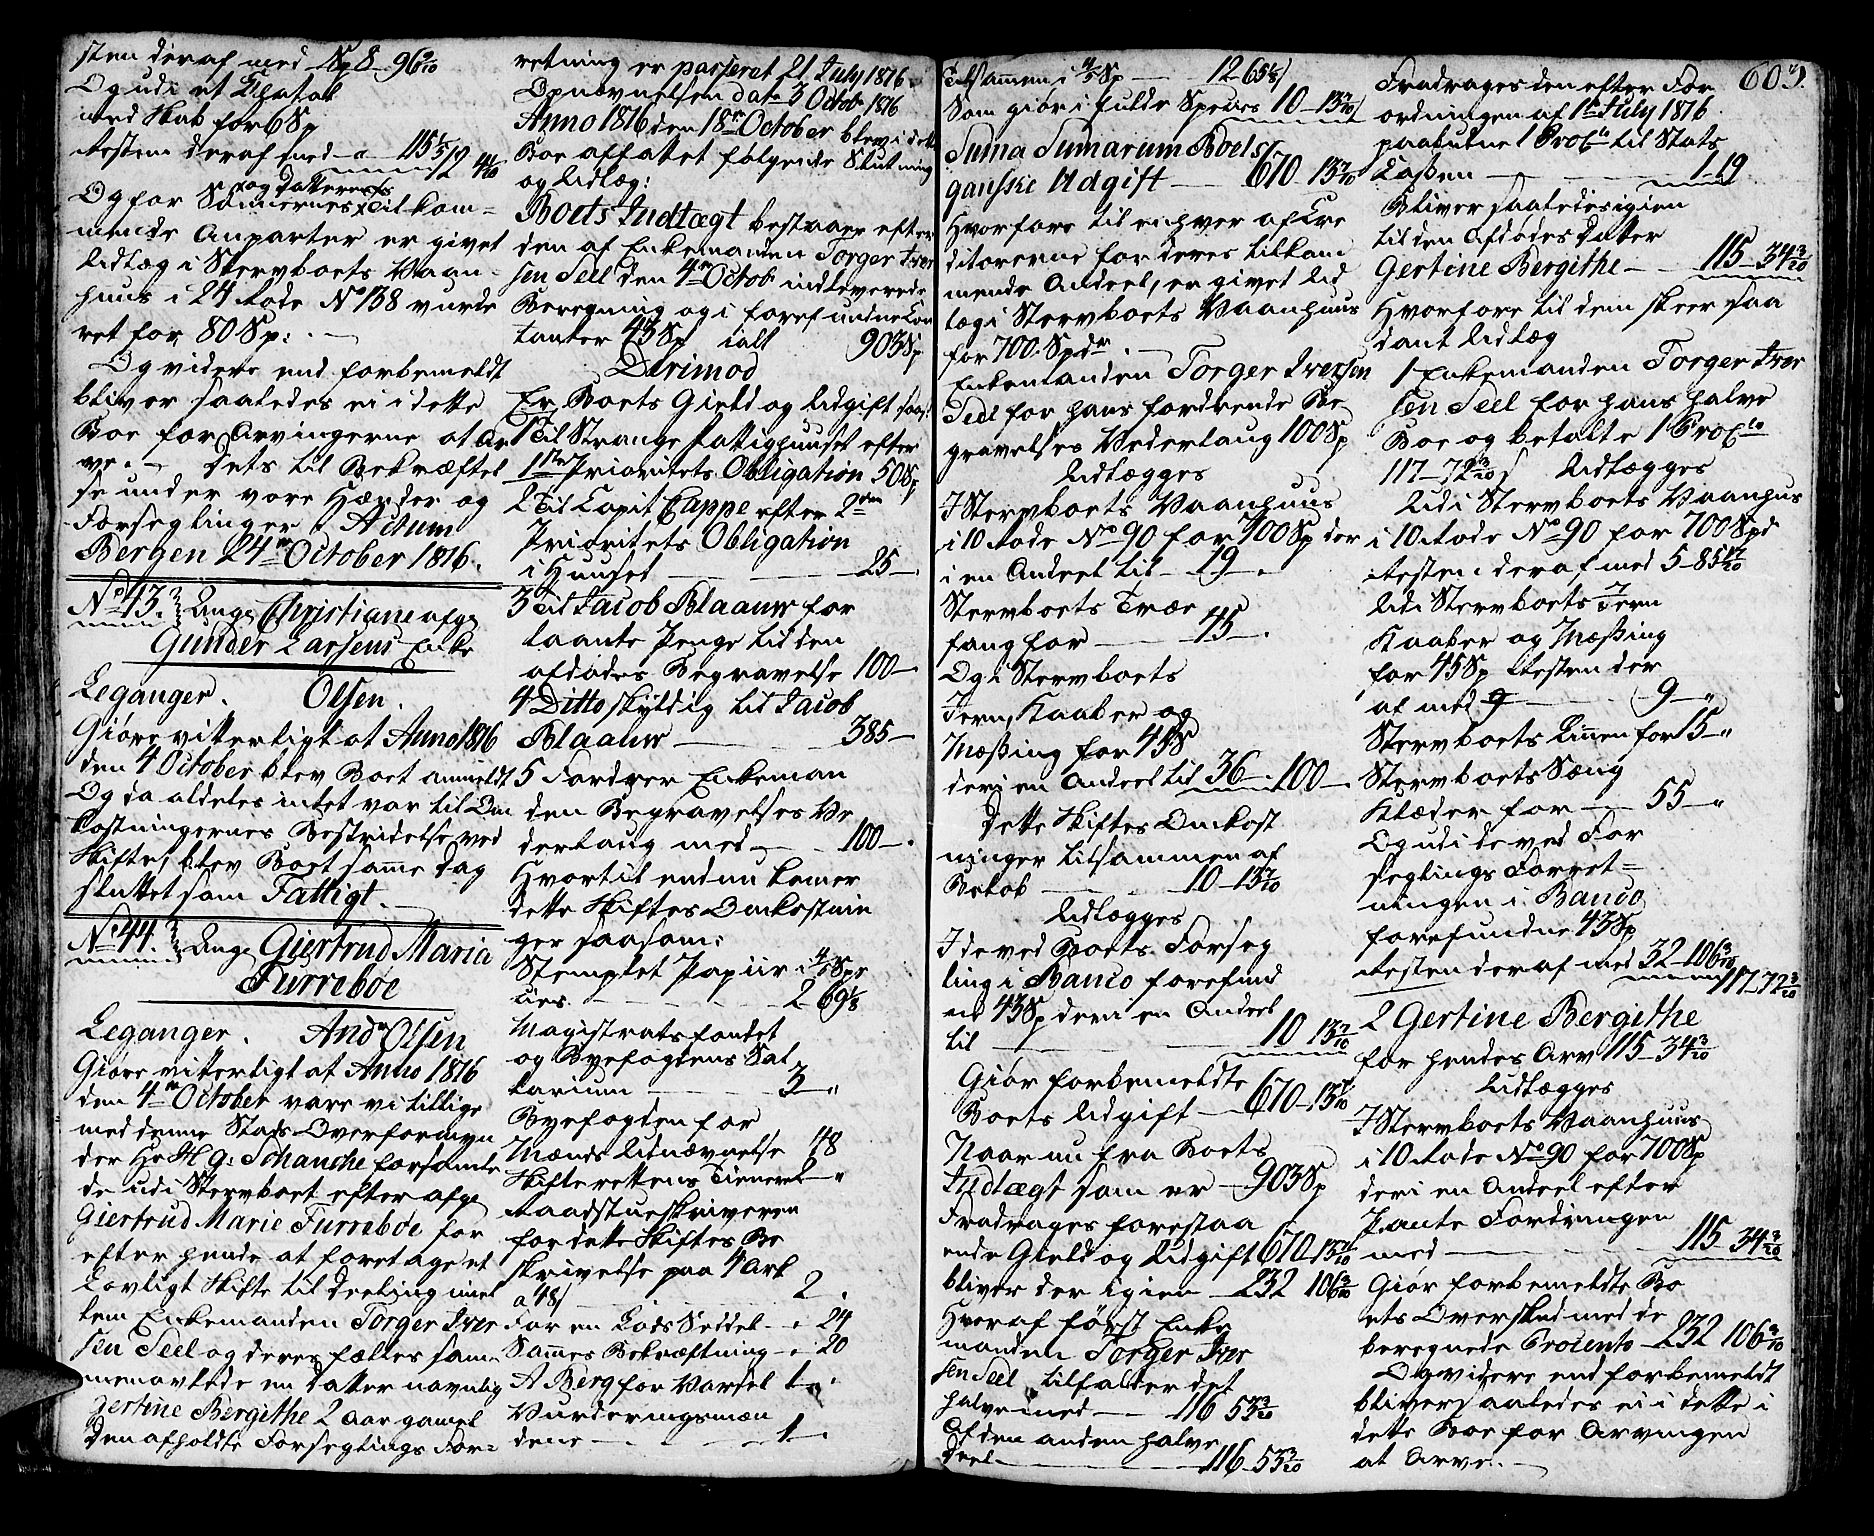 sten deraf med No 8 96 9/10
Og udi et Chatol
med Skab for 6 Sp
resten deraf med " 115 1/5 / 2 4/10
og datternes
Og for Sönnernes tilkom-
mende Anparter er givet
Udlæg i Stervboets Vaan-
huus i 24 Rode No 138 vurde
ret for 80 Sp: . —
Og videre end forbemeldt
bliver saaledes ei i dette
Boe for Arvingerne at Ar
ve. — Dets til Bekræftel
se under vore Hænder og
Forseglinger Actum
Bergen 24de October 1816.
No 43. Ang: Christiane afg:
Gunder Larsens Enke
Leganger. Olsen.
Giöre vitterligt at Anno 1816
den 4 October blev Boet anmeldt
Og da aldeles intet var til Om
kostningernes Bestridelse ved
Skifte, blev Boet samme dag
sluttet som Fattigt. —
No 44. Ang: Giertrud Maria
Furreböe
Leganger. And: Olsen
Giöre vitterligt at Anno 1816
den 4de October vare vi tillige
med denne Stads Overformyn
der Hr H g: Schanche forsamle
de udi Stervboet efter afg:
Giertrud Marie Furreböe for
efter hende at foretage et
Lovligt Skifte til deeling imel
lem Enkemanden Torger Iver
sen Seel og deres fælles sam-
menavlede en datter navnlig
Gertine Bergithe 2 aar gamel
Den afholdte Forseglings For-
retning er passeret 21 July 1816
Opnævnelsen dat: 3 Octob: 1816
Anno 1816 den 18de October blev i dette
Boe affattet fölgende Slutning
og Udlæg:
Boets Indtægt bestaaer efter
den af Enkemanden Torger Iver
sen Seel den 4de Octob indleverede
Beregning og i forefundne Con
tanter 43 Sp ialt 903 Sp
Derimod
Er Boets Gield og Udgift saa:
1 Til Strange Fattighuuset efter
1ste Prioritets Obligation 50 Sp
2 Til Capit Cappe efter 2den
Prioritets Obligation
i Huuset — 25 —
3 Til Jacob Blaauw for
laante Penge til den
afdödes Begravelse 100 —
4 Ditto skyldig til Jacob
Blaauw — 385 —
5 Fordrer Enkeman
den Begravelses Ve
derlaug med — 100 —
Hvortil endnu komer
dette Skiftes Omkostnin
ger saasom:
Stemplet Papiir i 4/5 Spe
cies. — 2 69 1/5
Magistratsfondet
og Byefogdens Sal
larium — 3 "
Byefogden for
Mænds Udnævnelse 48
Skifterettens Tienere 2 "
Raadstueskriveren
for dette Skiftes Be
skrivelse paa 4 Ark
a 48 / — 2 .
For en Lods Seddel - " 24
Sammes Bekræftning - " 20
A Berg for Varsel 1 " .
Vurderingsmæn
dene — 1 — .
Tilsammen i 4/5 Sp — 12 65 1/5 /
Som giör i fulde Species 10 - 13 7/10 /
Suma Sumarum Boets
gandske Udgift — 670 - 13 7/10
Hvorfore til enhver af Cre
ditorerne for deres tilkom
mende Andeel, er givet Ud
læg i Stervboets Vaanhuus
for 700 Spdr . —
Enkemanden Torger Iversen
Seel for hans fordrende Be
gravelses Vederlaug 100 Sp
Udlægges
I Stervboets Vaanhuus
i 10 Rode No 90 for 700 Sp der
i en Andeel til - 19 — .
Stervboets Træ
fang for — 45 — .
Og i Stervboets
Jern, Kaaber og
Mæssing for 45 S
deri en Andeel til 36 — 100 —
Dette Skiftes Omkost
ninger tilsammen af
Belöb — 10 - 13 7/10
Udlægges
I de ved Boets Forseg
ling i Banco forefund
ne 43 Sp deri en Andeel
til — 10 13 7/10
Giör forbemeldte
Boets Udgift — 670 - 13 7/10
Naar nu fra Boets
Indtægt som er — 903 Sp
Fradrages forestaa
ende Gield og Udgift 670 - 13 7/10
bliver der igien — 232 106 3/10
Hvoraf först Enke
manden Torger Iver
sen Seel tilfalder det
halve med — 116 53 3/20
Af den anden halve
Deel — 116 - 53 3/20
609.
Fradrages den efter For
ordningen af 1ste July 1816
paabudne 1 Procto til Stats
Cassen — 1 - 19
Bliver saaledes igien
til den Afdödes datter
Gertine Bergithe — 115 - 34 3/20
Hvorfore til dem skeer saa
dant Udlæg
1 Enkemanden Torger Iver
sen Seel for hans halve
Boe og betalte 1 Procto
117 - 72 3/20 / Udlægges
Udi Stervboets Vaanhus
i 10 Rode No 90 for 700 Spd
resten deraf med 5 - 85 17/20
Udi Stervboets Jern
Kaaber og Mæssing
for 45 Sp resten der
af med 9 — 9 — "
Stervboets Linnen for 15 — "
Stervboets Sæng
Klæder for — 55 — "
Og udi de ved For
seglings Forret-
ningen i Banco
forefundne 43 Sp
resten deraf med 32 - 106 3/10
117 - 72 3/20
2 Gertine Bergithe
for hendes Arv 115 - 34 3/20
Udlægges
I Stervboets Vaanhuus
i 10 Rode No 90 for 700 Sp
deri en Andeel efter
Pante Fordringen
med — 115 34 3/20
Giör forbemeldte Bo
ets Overskud med de
beregnede Procento — 232 106 3/10
Og videre end forbemeldt
bliver saaledes ei i dette
Boe for Arvingen
at Arve. —